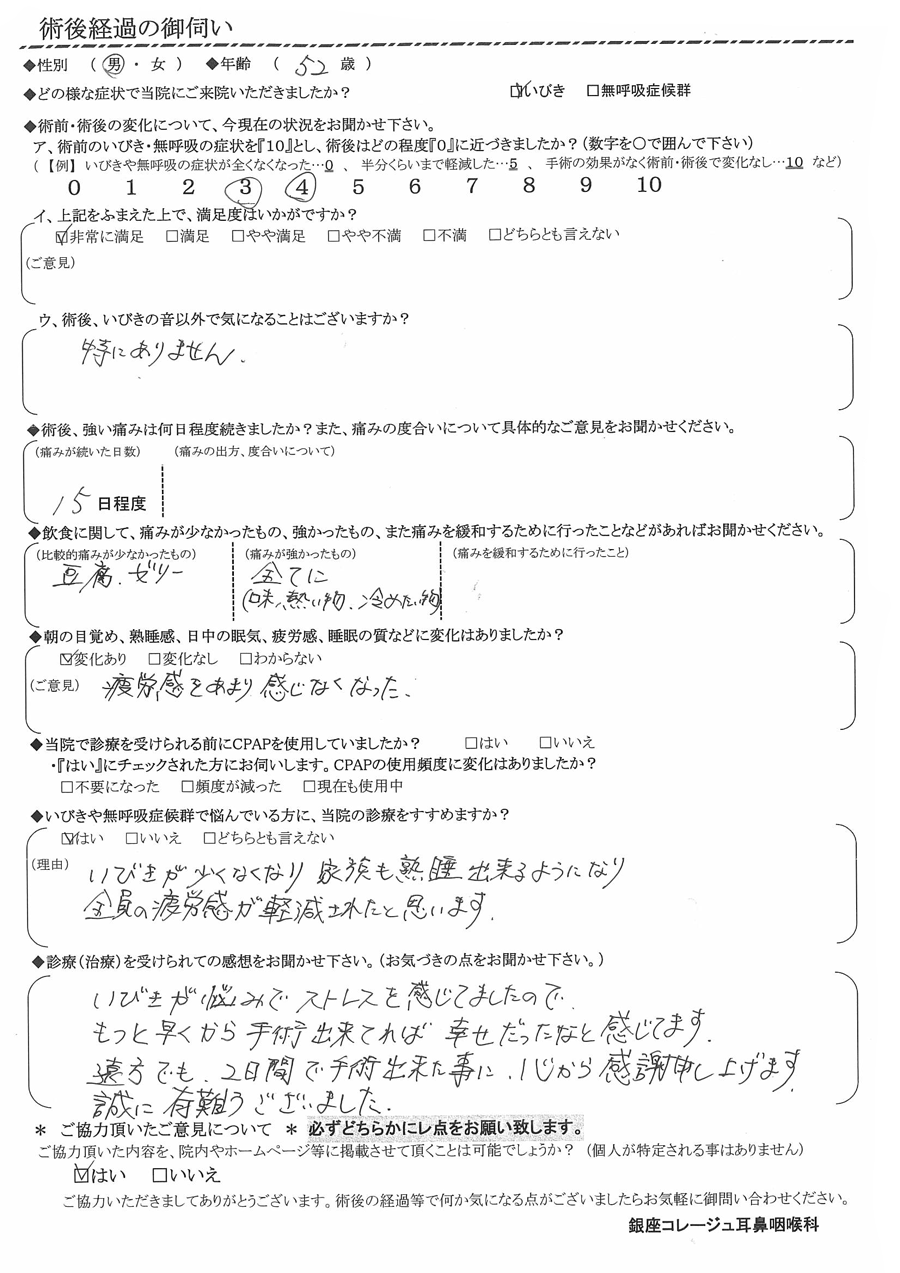 術後経過の御伺い
◆性別　（ 男 ・ 女 ）　◆年齢　（ 52 歳 ）
◆どの様な症状で当院にご来院いただきましたか？　☑いびき　□無呼吸症候群
◆術前・術後の変化について、今現在の状況をお聞かせ下さい。
ア、術前のいびき・無呼吸の症状を『10』とし、術後はどの程度『0』に近づきましたか？（数字を○で囲んで下さい）
（ 【例】 いびきや無呼吸の症状が全くなくなった…0 、 半分くらいまで軽減した…5 、 手術の効果がなく術前・術後で変化なし…10 など）
0　1　2　3　4　5　6　7　8　9　10
イ、上記をふまえた上で、満足度はいかがですか？
☑非常に満足　□満足　□やや満足　□やや不満　□不満　□どちらとも言えない
（ご意見）
ウ、術後、いびきの音以外で気になることはございますか？
特にありません.
◆術後、強い痛みは何日程度続きましたか？また、痛みの度合いについて具体的なご意見をお聞かせください。
（痛みが続いた日数）　（痛みの出方、度合いについて）
15 日程度
◆飲食に関して、痛みが少なかったもの、強かったもの、また痛みを緩和するために行ったことなどがあればお聞かせください。
（比較的痛みが少なかったもの）　（痛みが強かったもの）　（痛みを緩和するために行ったこと）
豆腐. ゼリー　全てに
(味、熱い物、冷めたい物)
◆朝の目覚め、熟睡感、日中の眠気、疲労感、睡眠の質などに変化はありましたか？
☑変化あり　□変化なし　□わからない
（ご意見）　疲労感をあまり感じなくなった.
◆当院で診療を受けられる前にCPAPを使用していましたか？　□はい　□いいえ
・『はい』にチェックされた方にお伺いします。CPAPの使用頻度に変化はありましたか？
□不要になった　□頻度が減った　□現在も使用中
◆いびきや無呼吸症候群で悩んでいる方に、当院の診療をすすめますか？
☑はい　□いいえ　□どちらとも言えない
（理由）　いびきが少くなくなり 家族も熟睡出来るようになり
全員の疲労感が軽減されたと思います.
◆診療（治療）を受けられての感想をお聞かせ下さい。（お気づきの点をお聞かせ下さい。）
いびきが悩みでストレスを感じてましたので.
もっと早くから手術出来てれば 幸せだったなと感じてます.
遠方でも、2日間で手術出来た事に、心から感謝申し上げます.
誠に有難うございました.
＊ ご協力頂いたご意見について ＊ 必ずどちらかにレ点をお願い致します。
ご協力頂いた内容を、院内やホームページ等に掲載させて頂くことは可能でしょうか？ （個人が特定される事はありません）
☑はい　□いいえ
ご協力いただきましてありがとうございます。術後の経過等で何か気になる点がございましたらお気軽に御問い合わせください。
銀座コレージュ耳鼻咽喉科